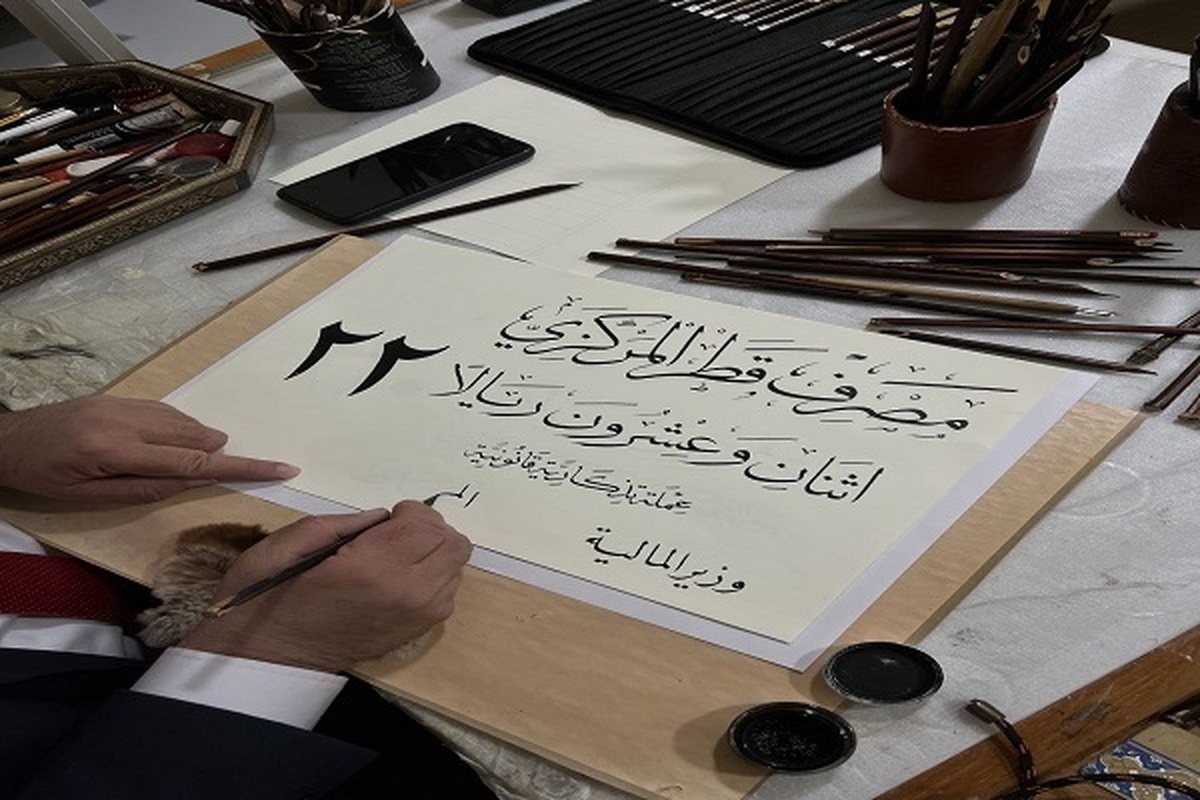 مصرف قطر المركزي
اثنان وعشرون ريالا ٢٢
عملة تذكارية قانونية
وزير المالية المـ